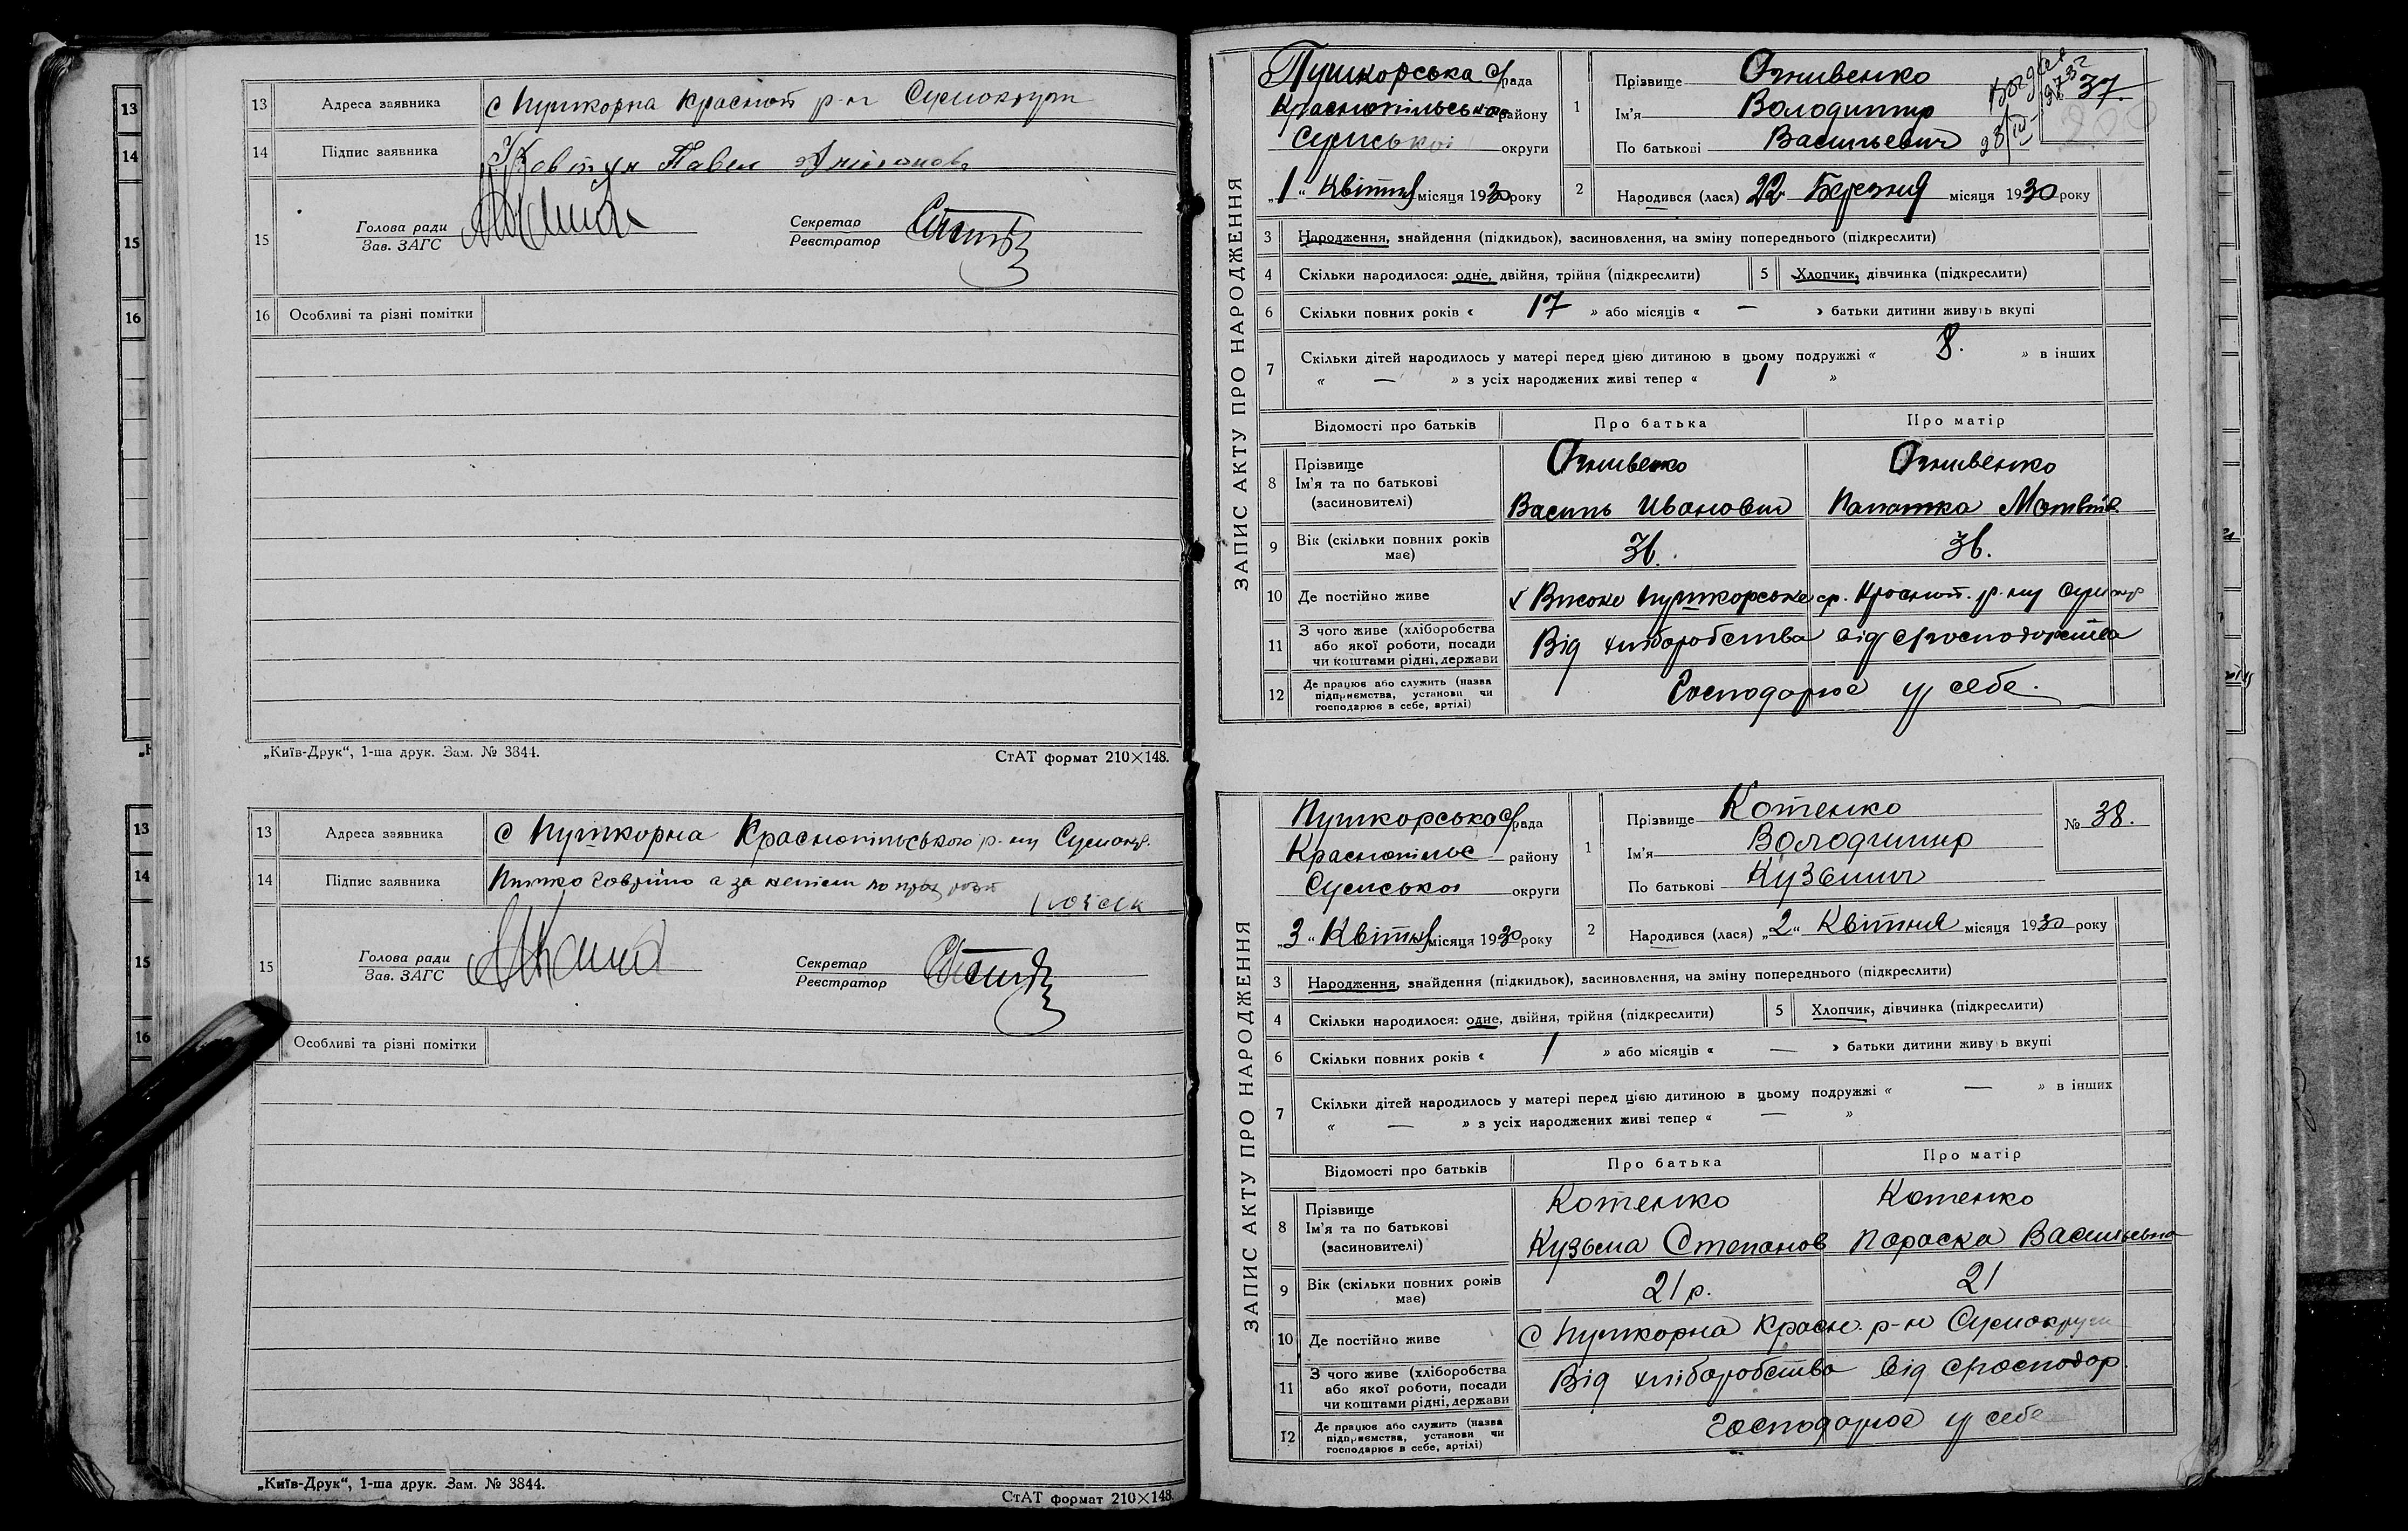 13
14
15
16
13
14
15
16
13 Адреса заявника с Пушкорна Красноп р-н Сумокруги
14 Підпис заявника Ковтун Павел
15 Голова ради
Зав. ЗАГС
Секретар
Реєстратор
16 Особливі та різні помітки
„Київ-Друк“, 1-ша друк. Зам. № 3844.
СтАТ формат 210×148.
13 Адреса заявника с Пушкорна Краснопільського р-ну Сумокр.
14 Підпис заявника
15 Голова ради
Зав. ЗАГС
Секретар
Реєстратор
Особливі та різні помітки
„Київ-Друк“, 1-ша друк. Зам. № 3844.
СтАТ формат 210×148.
ЗАПИС АКТУ ПРО НАРОДЖЕННЯ
Пушкорська с/рада
Краснопільського району
Сумської округи
„1“ Квітня місяця 1930 року
1 Прізвище Огнивенко
Ім'я Володимир
По батькові Васильевич
37
2 Народився (лася) 22 Березня місяця 1930 року
3 Народження, знайдення (підкидьок), засиновлення, на зміну попереднього (підкреслити)
4 Скільки народилося: одне, двійня, трійня (підкреслити) 5 Хлопчик, дівчинка (підкреслити)
6 Скільки повних років « 17 » або місяців « — » батьки дитини живуть вкупі
7 Скільки дітей народилось у матері перед цією дитиною в цьому подружжі « 8. » в інших
« — » з усіх народжених живі тепер « 1 »
Відомості про батьків Про батька Про матір
8 Прізвище
Ім'я та по батькові
(засиновителі)
Огнивенко Огнивенко
Василь Иванович Матвіїв
9 Вік (скільки повних років має) 36. 36.
10 Де постійно живе Високе Пушкорської ср. Красноп. р-ну Сумокр
11 З чого живе (хліборобства або якої роботи, посади чи коштами рідні, держави Від хліборобства від господорства
12 Де працює або служить (назва підприємства, установи чи господарює в себе, артілі) Господарює у себе.
ЗАПИС АКТУ ПРО НАРОДЖЕННЯ
Пушкорська с/рада
Краснопільс району
Сумської округи
„3“ Квітня місяця 1930 року
1 Прізвище Котенко
Ім'я Володимир
По батькові Кузьмич
№ 38.
2 Народився (лася) „2“ Квітня місяця 1930 року
3 Народження, знайдення (підкидьок), засиновлення, на зміну попереднього (підкреслити)
4 Скільки народилося: одне, двійня, трійня (підкреслити) 5 Хлопчик, дівчинка (підкреслити)
6 Скільки повних років « 1 » або місяців « — » батьки дитини живуь вкупі
7 Скільки дітей народилось у матері перед цією дитиною в цьому подружжі « — » в інших
« — » з усіх народжених живі тепер « — »
Відомості про батьків Про батька Про матір
8 Прізвище
Ім'я та по батькові
(засиновителі)
Котенко Котенко
Кузьма Степанов Пораска Васильевна
9 Вік (скільки повних років має) 21 р. 21
10 Де постійно живе С Пушкорна Красн. р-н Сумокруги
11 З чого живе (хліборобства або якої роботи, посади чи коштами рідні, держави Від хліборобства від господор.
12 Де працює або служить (назва підприємства, установи чи господарює в себе, артілі) Господарює у себе